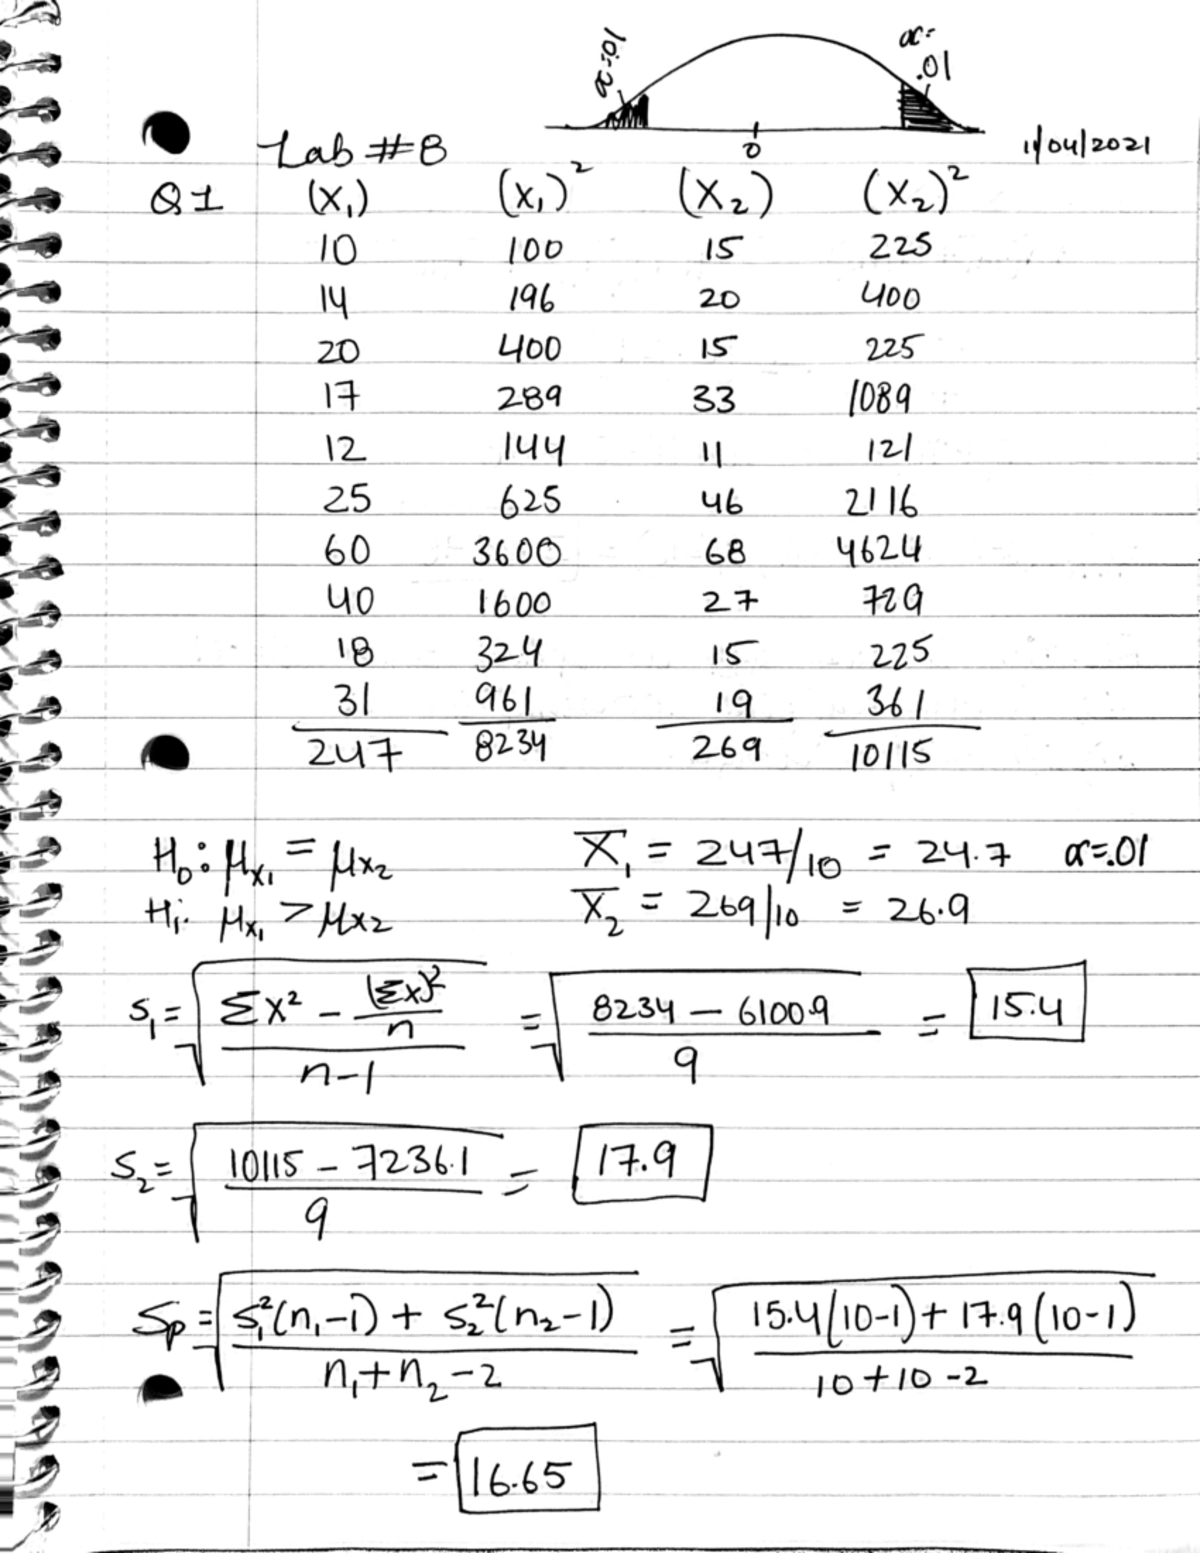 α=.01
α=.01
0
Lab #8
11/04/2021
Q1 (X₁) (X₁)² (X₂) (X₂)²
10 100 15 225
14 196 20 400
20 400 15 225
17 289 33 1089
12 144 11 121
25 625 46 2116
60 3600 68 4624
40 1600 27 729
18 324 15 225
31 961 19 361
247 8234 269 10115
H₀: μx₁ = μx₂ X̄₁ = 247/10 = 24.7 α=.01
H₁: μx₁ > μx₂ X̄₂ = 269/10 = 26.9
S₁ = √((ΣX² − (ΣX)²/n)/(n−1)) = √((8234 − 6100.9)/9) = 15.4
S₂ = √((10115 − 7236.1)/9) = 17.9
Sp = √((S₁²(n₁−1) + S₂²(n₂−1))/(n₁+n₂−2)) = √((15.4(10-1) + 17.9(10-1))/(10+10-2))
= 16.65